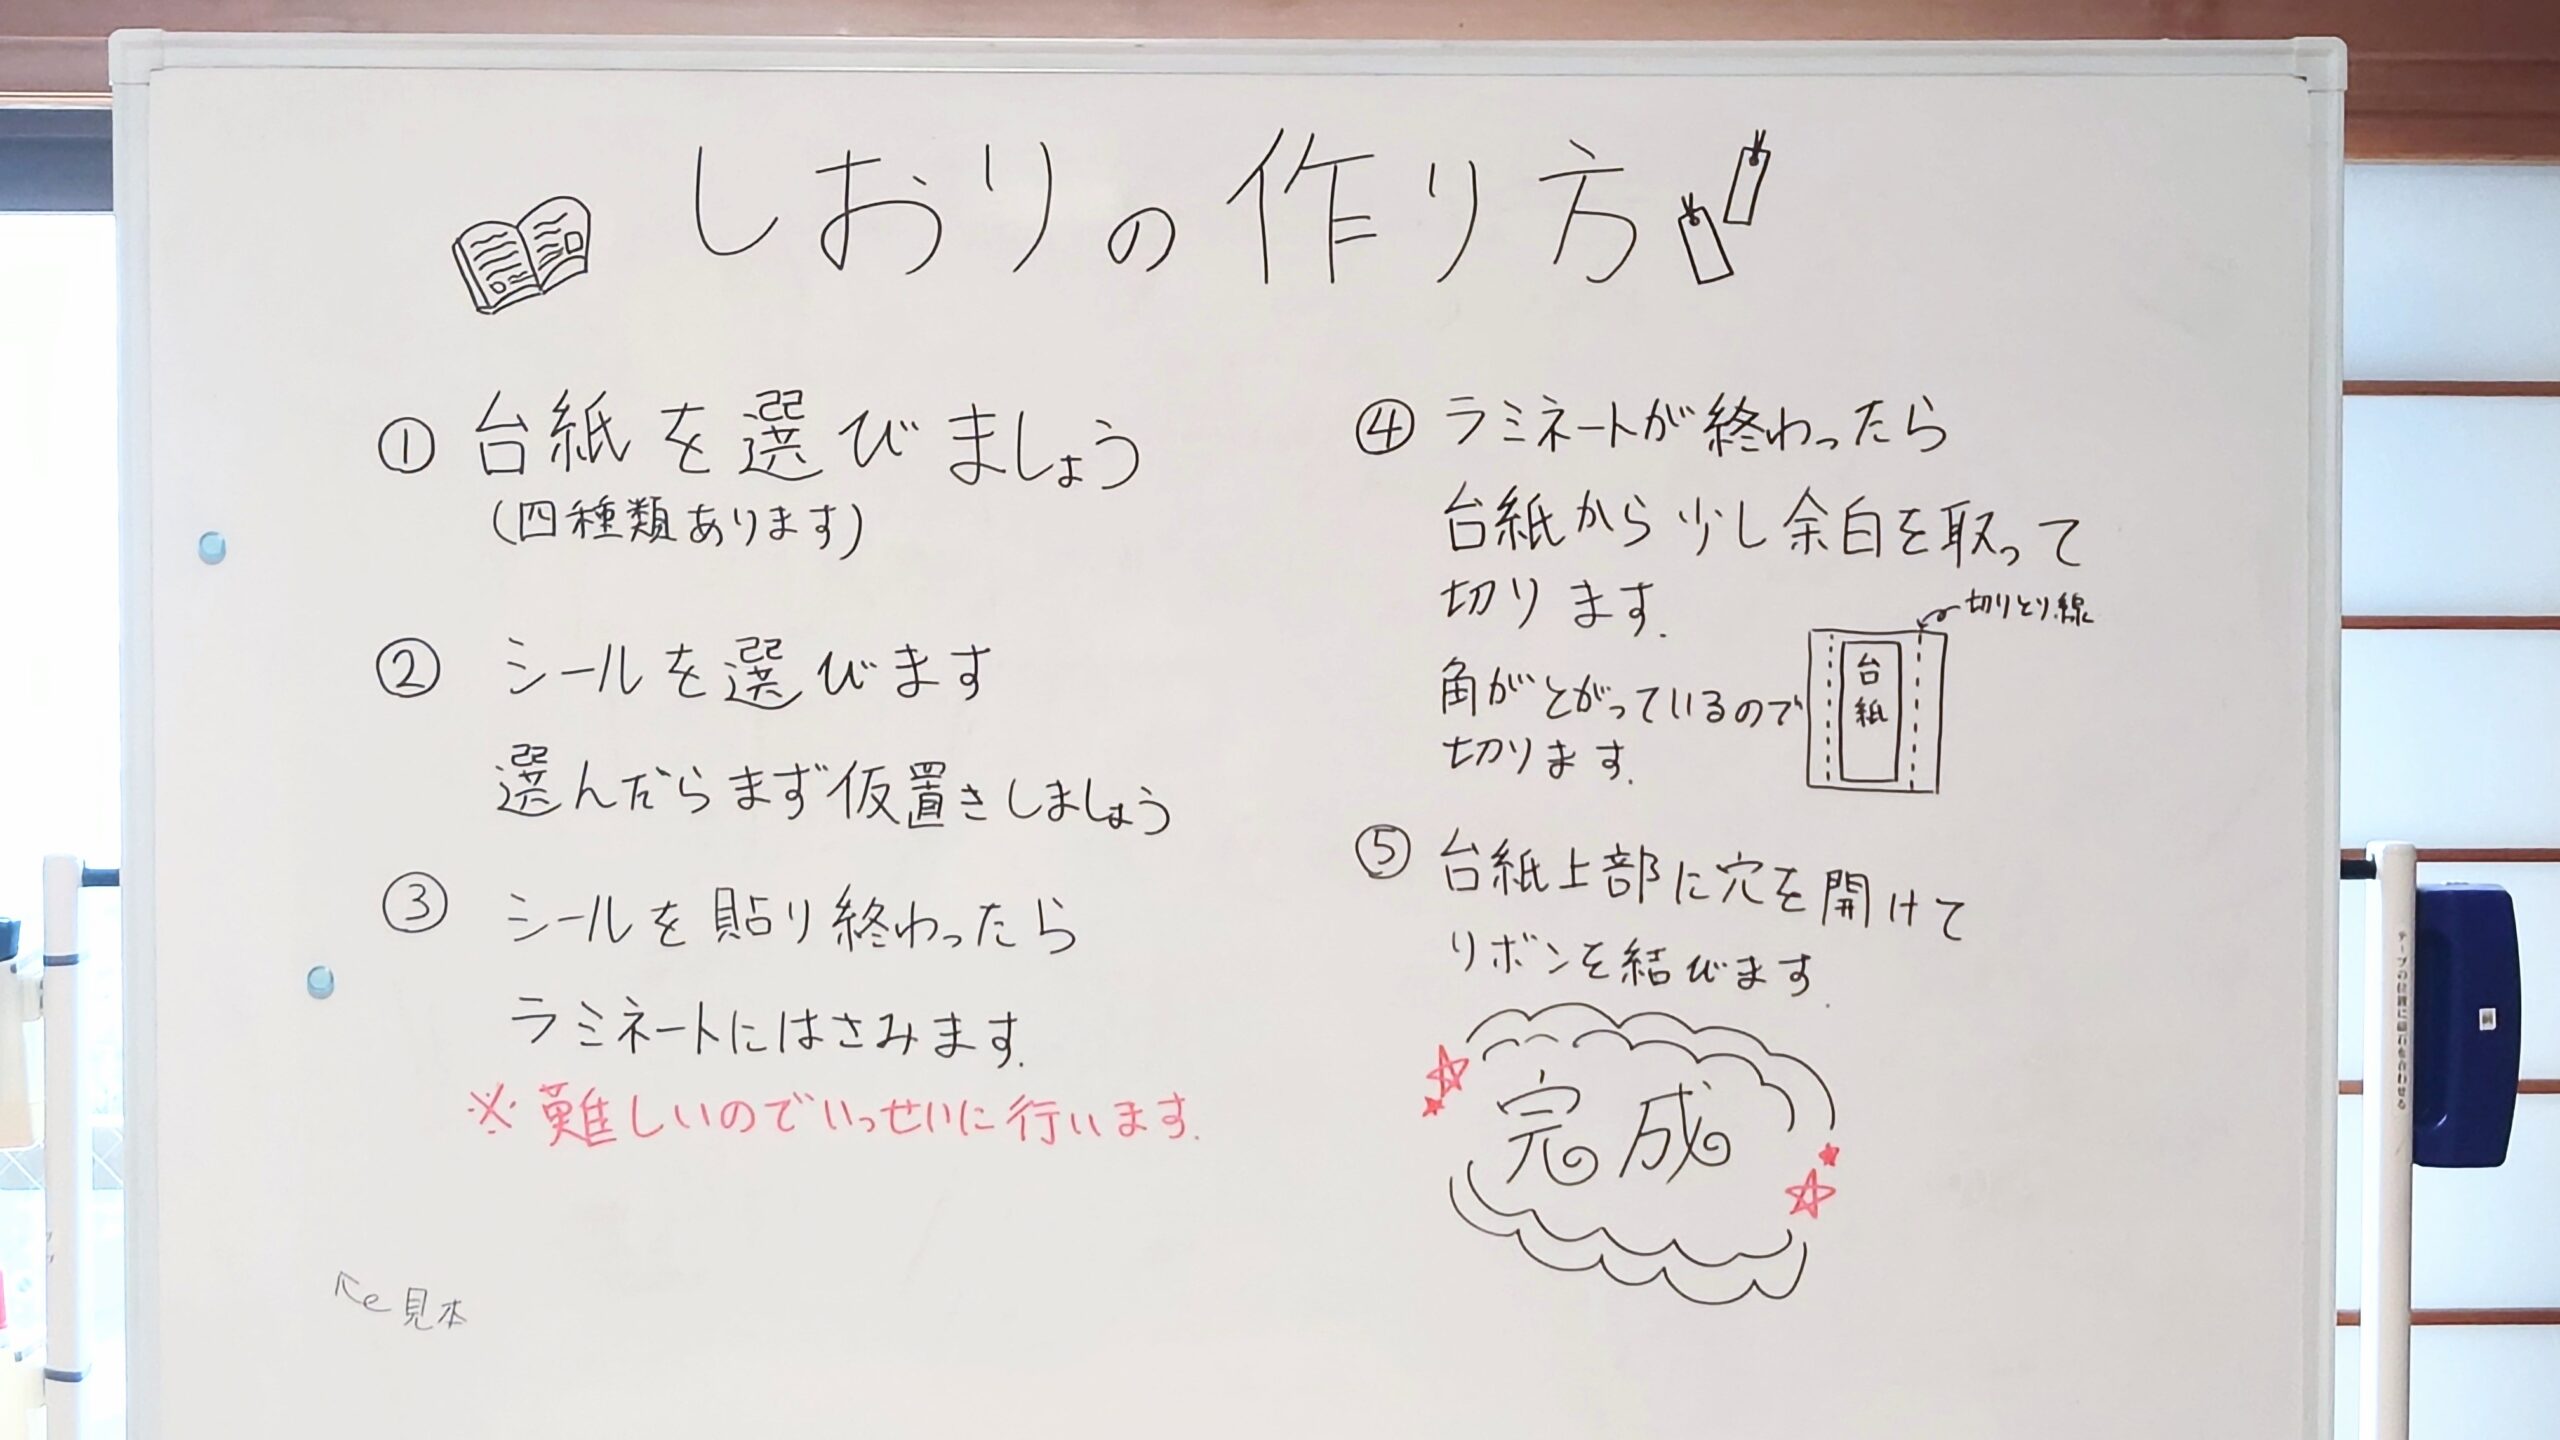 しおりの作り方
① 台紙を選びましょう
(四種類あります)
② シールを選びます
選んだらまず仮置きしましょう
③ シールを貼り終わったら
ラミネートにはさみます.
※難しいのでいっせいに行います.
見本
④ ラミネートが終わったら
台紙から少し余白を取って
切ります.
切りとり線
角がとがっているので
切ります.
台紙
⑤ 台紙上部に穴を開けて
リボンを結びます.
完成
テープの位置に磁石を合わせる